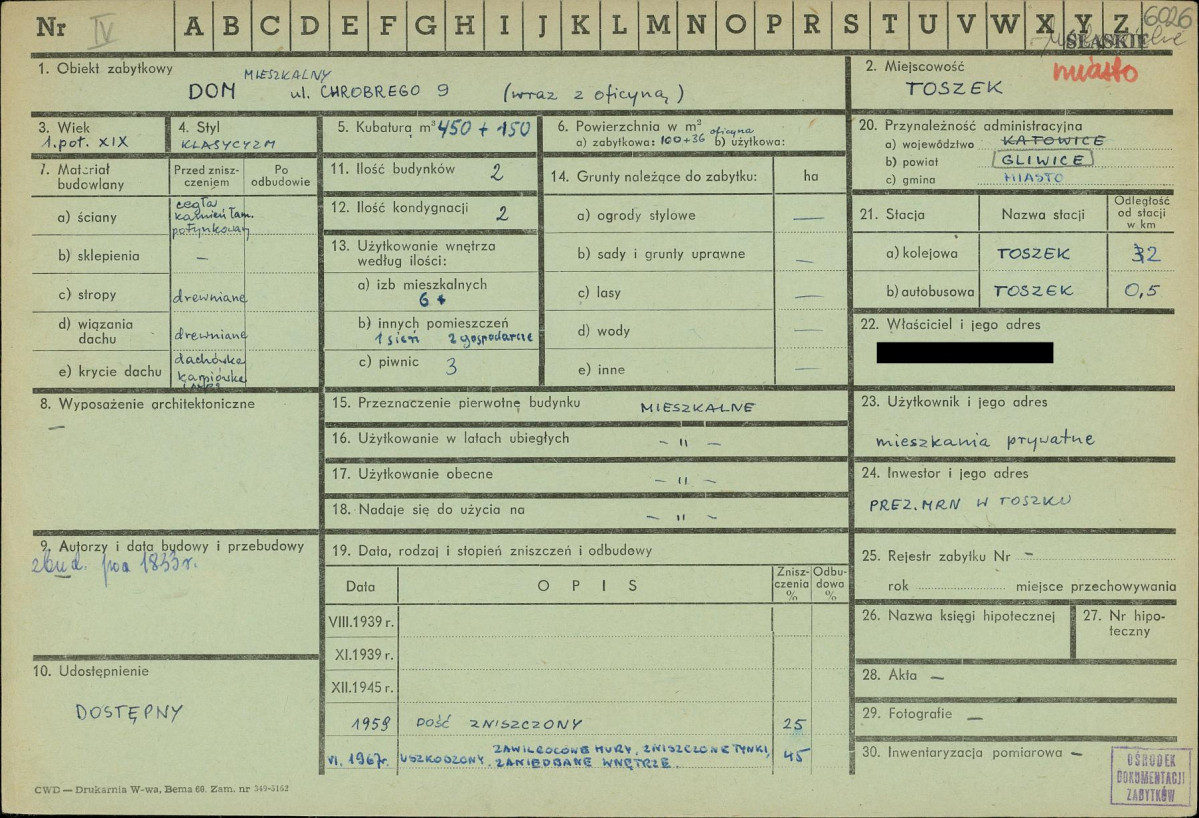 Nr IV A B C D E F G H I J K L M N O P R S T U V W X Y Z 6026
ŚLĄSKIE
1. Obiekt zabytkowy
DOM MIESZKALNY ul. CHROBREGO 9 (wraz z oficyną)
2. Miejscowość
miasto
TOSZEK
3. Wiek
1. poł. XIX
4. Styl
KLASYCYZM
5. Kubatura m³ 450 + 150
6. Powierzchnia w m²
a) zabytkowa: 100+36 oficyna b) użytkowa:
20. Przynależność administracyjna
a) województwo KATOWICE
b) powiat GLIWICE
c) gmina MIASTO
7. Materiał budowlany
Przed zniszczeniem
Po odbudowie
a) ściany cegła
kamień łam.
potynkowany
b) sklepienia –
c) stropy drewniane
d) wiązania dachu drewniane
e) krycie dachu dachówka
karpiówka
11. Ilość budynków 2
12. Ilość kondygnacji 2
13. Użytkowanie wnętrza
według ilości:
a) izb mieszkalnych
6
b) innych pomieszczeń
1 sień 2 gospodarcze
c) piwnic 3
14. Grunty należące do zabytku: ha
a) ogrody stylowe —
b) sady i grunty uprawne —
c) lasy —
d) wody —
e) inne —
21. Stacja Nazwa stacji Odległość
od stacji
w km
a) kolejowa TOSZEK 2
b) autobusowa TOSZEK 0,5
22. Właściciel i jego adres
8. Wyposażenie architektoniczne
—
15. Przeznaczenie pierwotne budynku MIESZKALNE
16. Użytkowanie w latach ubiegłych – " –
17. Użytkowanie obecne – " –
18. Nadaje się do użycia na – " –
23. Użytkownik i jego adres
mieszkania prywatne
24. Inwestor i jego adres
PREZ. MRN W TOSZKU
9. Autorzy i data budowy i przebudowy
zbud. po 1833 r.
19. Data, rodzaj i stopień zniszczeń i odbudowy
Data OPIS Zniszczenia % Odbudowa %
VIII.1939 r.
XI.1939 r.
XII.1945 r.
1959 DOŚĆ ZNISZCZONY 25
VI. 1967r. USZKODZONY, ZAWILGOCONE MURY, ZNISZCZONE TYNKI,
ZANIEDBANE WNĘTRZE. 45
25. Rejestr zabytku Nr –
rok miejsce przechowywania
26. Nazwa księgi hipotecznej
27. Nr hipoteczny
10. Udostępnienie
DOSTĘPNY
28. Akta —
29. Fotografie —
30. Inwentaryzacja pomiarowa –
OŚRODEK
DOKUMENTACJI
ZABYTKÓW
CWD — Drukarnia W-wa, Bema 60. Zam. nr 349-5162